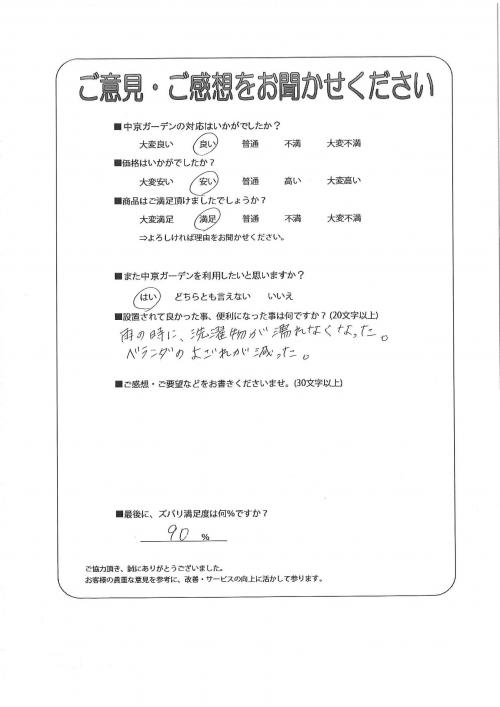 ご意見・ご感想をお聞かせください
■中京ガーデンの対応はいかがでしたか？
大変良い 良い 普通 不満 大変不満
■価格はいかがでしたか？
大変安い 安い 普通 高い 大変高い
■商品はご満足頂けましたでしょうか？
大変満足 満足 普通 不満 大変不満
⇒よろしければ理由をお聞かせください。
■また中京ガーデンを利用したいと思いますか？
はい どちらとも言えない いいえ
■設置されて良かった事、便利になった事は何ですか？(20文字以上)
雨の時に、洗濯物が濡れなくなった。
ベランダのよごれが減った。
■ご感想・ご要望などをお書きくださいませ。(30文字以上)
■最後に、ズバリ満足度は何%ですか？
90 %
ご協力頂き、誠にありがとうございました。
お客様の貴重な意見を参考に、改善・サービスの向上に活かして参ります。